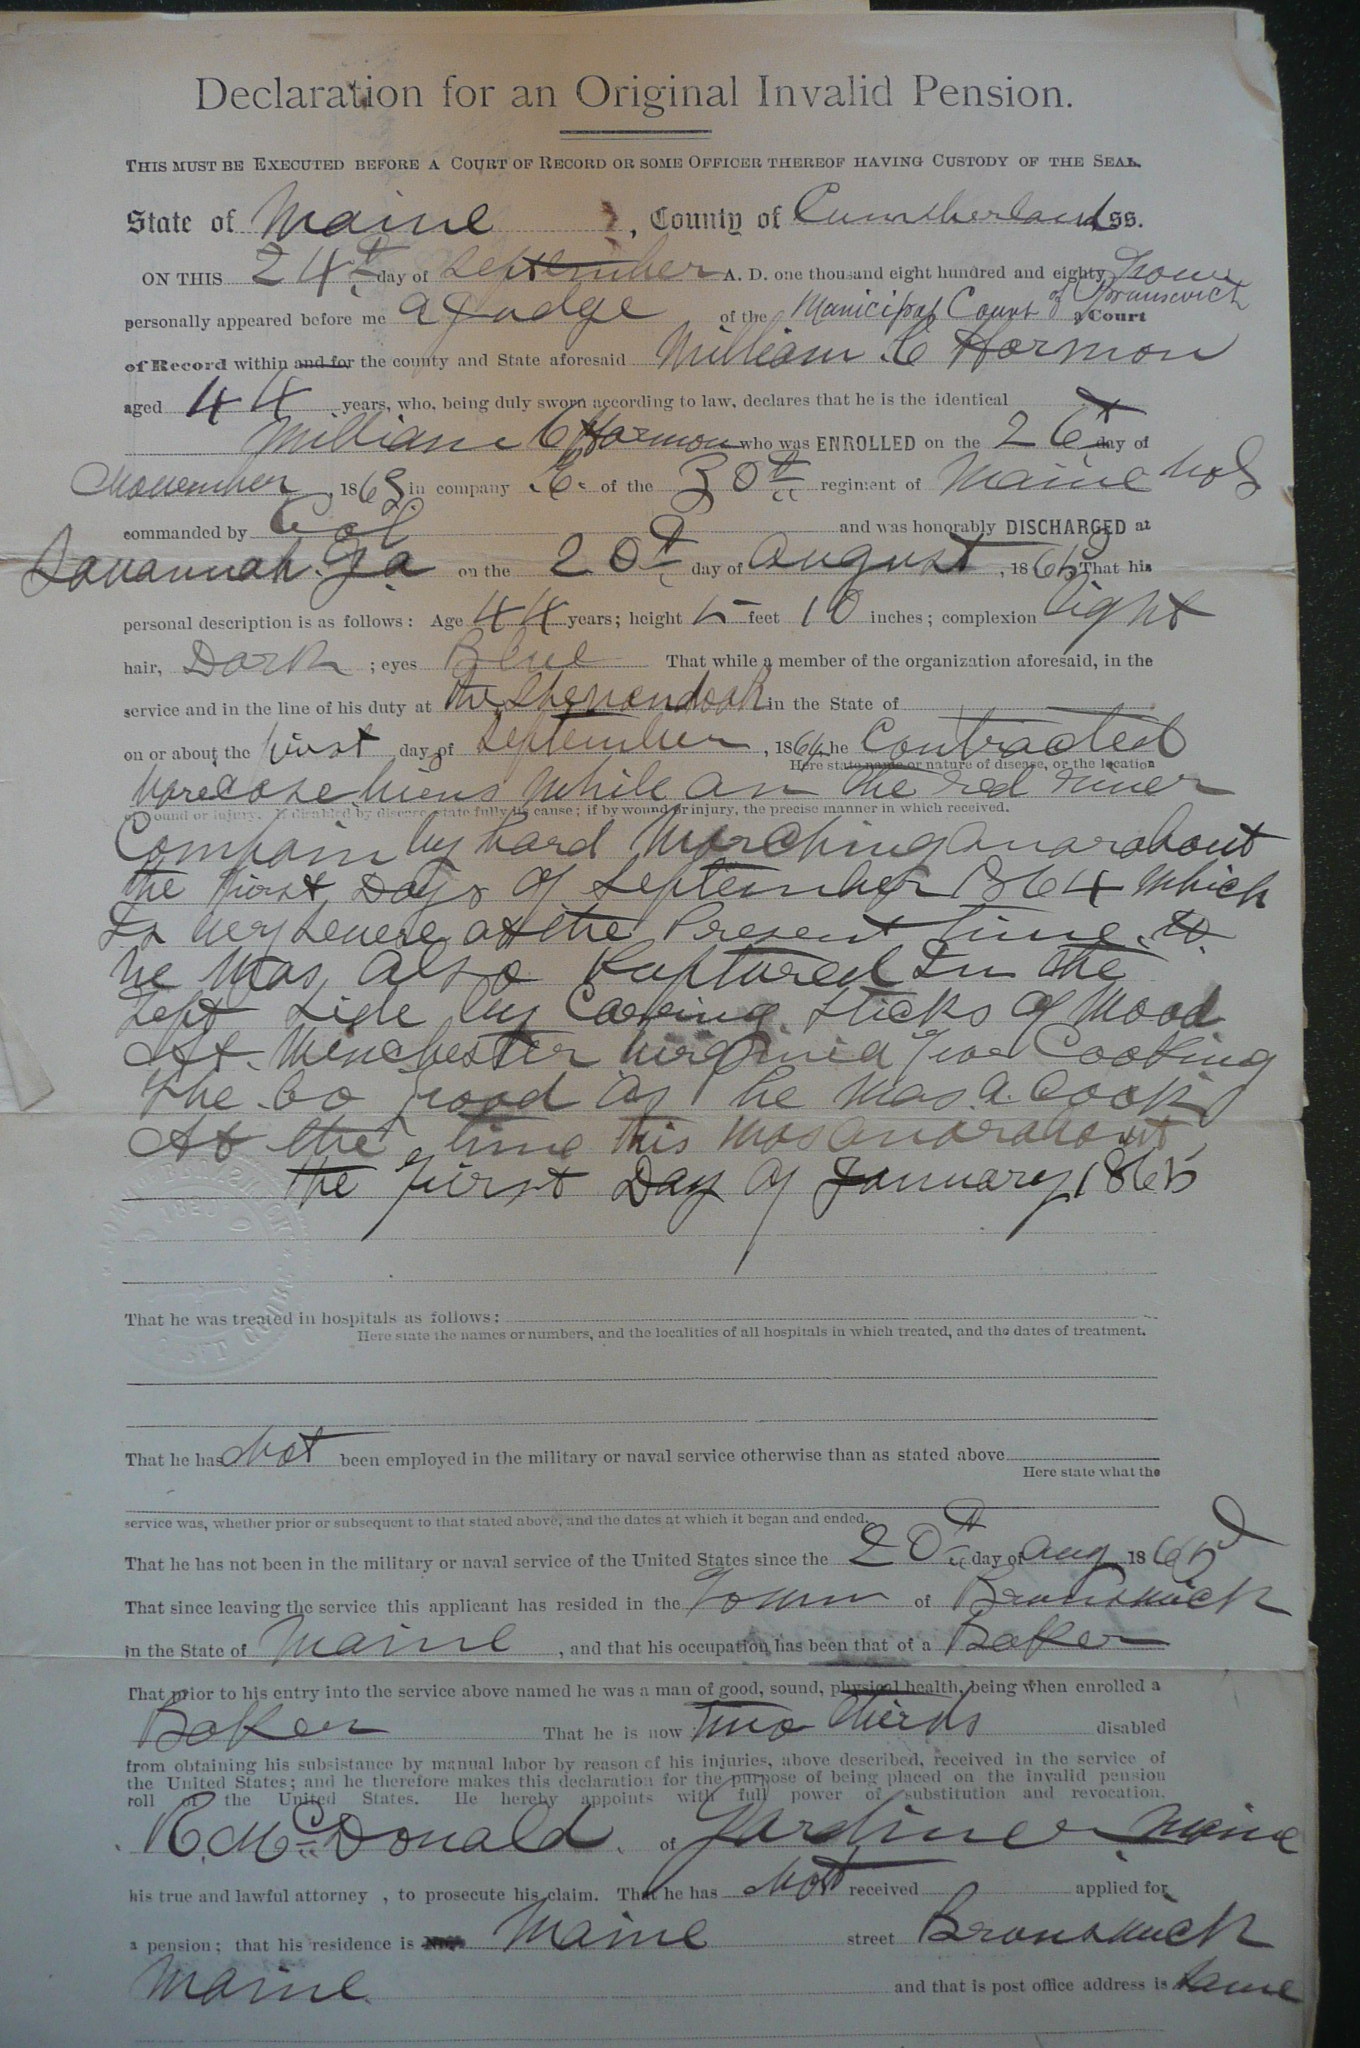 Declaration for an Original Invalid Pension.
THIS MUST BE EXECUTED BEFORE A COURT OF RECORD OR SOME OFFICER THEREOF HAVING CUSTODY OF THE SEAL.
State of Maine, County of Cumberland ss.
ON THIS 24th day of September A. D. one thousand eight hundred and eighty four
personally appeared before me a Judge of the Municipal Court of Brunswick a Court
of Record within and for the county and State aforesaid William C Harmon
aged 44 years, who, being duly sworn according to law, declares that he is the identical
William C Harmon who was ENROLLED on the 26th day of
November, 1863 in company E. of the 30th regiment of Maine Vols
commanded by Col and was honorably DISCHARGED at
Savannah. Ga on the 20th day of August, 1865 That his
personal description is as follows: Age 44 years; height 5 feet 10 inches; complexion light
hair, Dark; eyes Blue That while a member of the organization aforesaid, in the
service and in the line of his duty at the Shenandoah in the State of
on or about the first day of September, 1864, he Contracted
Here state name or nature of disease, or the location
Varecose Viens while on the red river
of wound or injury. If disabled by disease, state fully its cause; if by wound or injury, the precise manner in which received.
Compain by hard Marching on or about
the first Days of September 1864 which
Is very severe at the Present time.
he was also Ruptured In the
Left Side by Caring Sticks of wood
At Winchester Virginia for Cooking
the Co food as he was a Cook
At the time this was on or about
the first Day of January 1865
That he was treated in hospitals as follows:
Here state the names or numbers, and the localities of all hospitals in which treated, and the dates of treatment.
That he has Not been employed in the military or naval service otherwise than as stated above
Here state what the
service was, whether prior or subsequent to that stated above, and the dates at which it began and ended.
That he has not been in the military or naval service of the United States since the 20th day of Aug 1865
That since leaving the service this applicant has resided in the Town of Brunswick
in the State of Maine, and that his occupation has been that of a Baker
That prior to his entry into the service above named he was a man of good, sound, physical health, being when enrolled a
Baker That he is now two thirds disabled
from obtaining his subsistance by manual labor by reason of his injuries, above described, received in the service of
the United States; and he therefore makes this declaration for the purpose of being placed on the invalid pension
roll of the United States. He hereby appoints with full power of substitution and revocation,
R. McDonald. of Gardiner Maine
his true and lawful attorney, to prosecute his claim. That he has Not received applied for
a pension; that his residence is Maine street Brunswick
Maine and that is post office address is Same